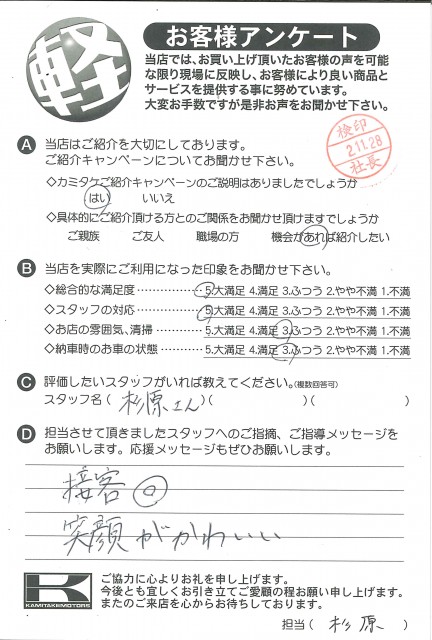 軽
お客様アンケート
当店では、お買い上げ頂いたお客様の声を可能
な限り現場に反映し、お客様により良い商品と
サービスを提供する事に努めています。
大変お手数ですが是非お声をお聞かせ下さい。
検印
2.11.28
社長
A 当店はご紹介を大切にしております。
ご紹介キャンペーンについてお聞かせ下さい。
◇カミタケご紹介キャンペーンのご説明はありましたでしょうか
はい いいえ
◇具体的にご紹介頂ける方とのご関係をお聞かせ頂けますでしょうか
ご親族 ご友人 職場の方 機会があれば紹介したい
B 当店を実際にご利用になった印象をお聞かせ下さい。
◇総合的な満足度……………5.大満足 4.満足 3.ふつう 2.やや不満 1.不満
◇スタッフの対応……………5.大満足 4.満足 3.ふつう 2.やや不満 1.不満
◇お店の雰囲気、清掃………5.大満足 4.満足 3.ふつう 2.やや不満 1.不満
◇納車時のお車の状態………5.大満足 4.満足 3.ふつう 2.やや不満 1.不満
C 評価したいスタッフがいれば教えてください。(複数回答可)
スタッフ名( 杉原さん )( )( )
D 担当させて頂きましたスタッフへのご指摘、ご指導メッセージを
お願いします。応援メッセージもぜひお願いします。
接客◎
笑顔がかわいい
K
KAMITAKEMOTORS
ご協力に心よりお礼を申し上げます。
今後とも宜しくお引き立てご愛顧の程お願い申し上げます。
またのご来店を心からお待ちしております。
担当( 杉原 )